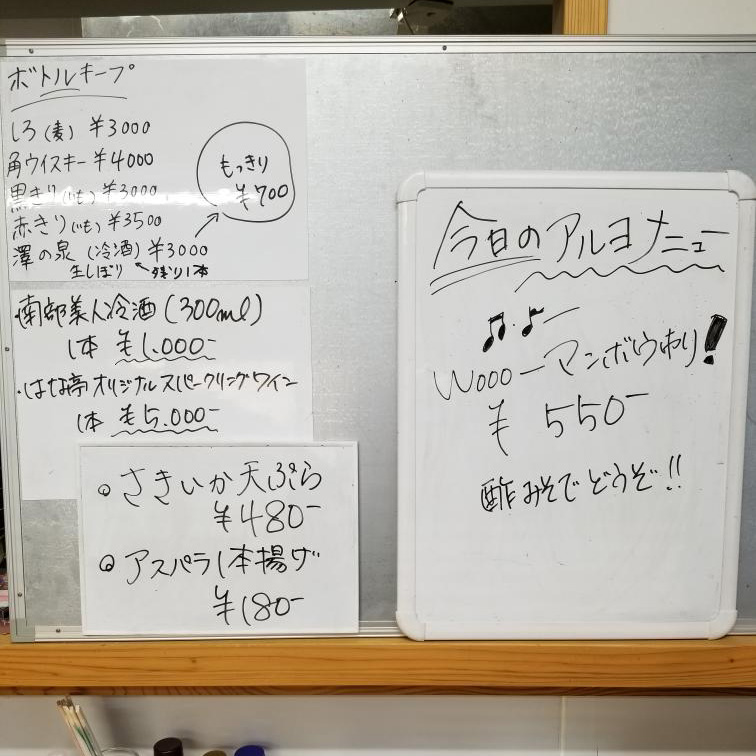 ボトルキープ
しろ(麦) ¥3000
角ウイスキー ¥4000
黒きり(いも) ¥3000
赤きり(いも) ¥3500
澤の泉 (冷酒) ¥3000
生しぼり ←残り1本
もっきり
¥700
・南部美人冷酒(300ml)
1本 ¥1.000-
・はな亭オリジナルスパークリングワイン
1本 ¥5.000-
さきいか天ぷら
¥480-
アスパラ1本揚げ
¥180-
今日のアルヨメニュー
♫・♪ー
Wooo-マンボウわり!
¥ 550-
酢みそでどうぞ!!